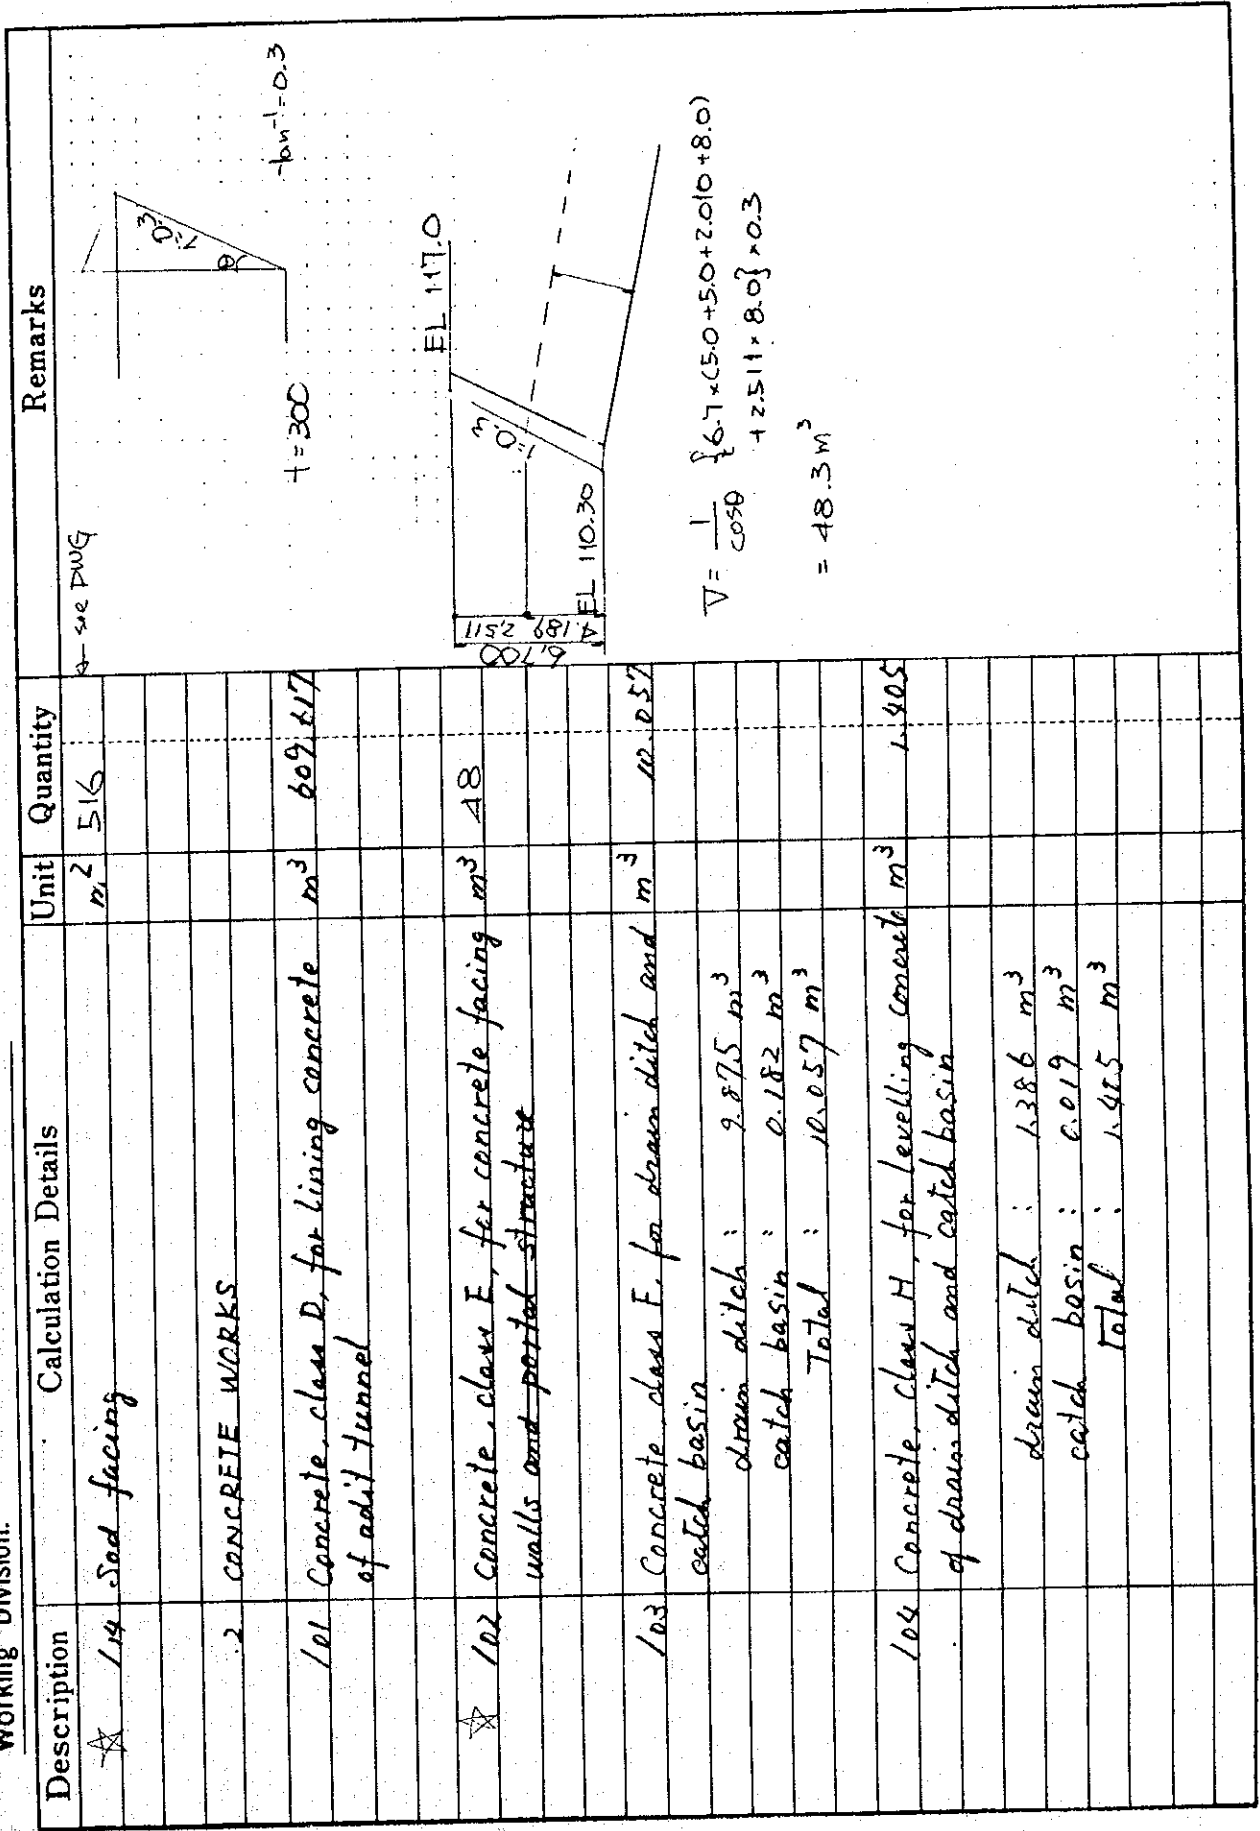 Working Division:
Description Calculation Details Unit Quantity Remarks
☆ 114 Sod facing m² 516 ← see DWG
.2 CONCRETE WORKS
101 Concrete, class D, for lining concrete m³ 609.617
of adit tunnel
☆ 102 Concrete, class E, for concrete facing m³ 48
walls and portal structure
103 Concrete, class F, for drain ditch and m³ 10.057
catch basin
drain ditch : 9.875 m³
catch basin : 0.182 m³
Total : 10.057 m³
104 Concrete, class H, for levelling concrete m³ 1.405
of drain ditch and catch basin
drain ditch : 1.386 m³
catch basin : 0.019 m³
Total : 1.405 m³
1=0.3
θ
tan⁻¹=0.3
t=300
EL 117.0
1=0.3
6,700
4.189 2,511
EL 110.30
V= 1/cosθ {6.7×(5.0+5.0+2.010+8.0)
+2.511×8.0}×0.3
= 48.3m³